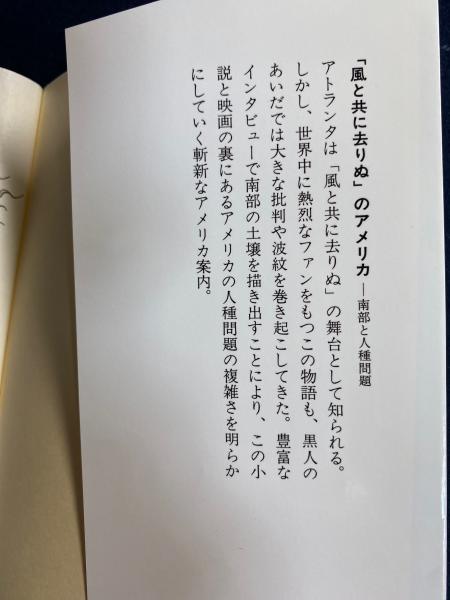 「風と共に去りぬ」のアメリカ―南部と人種問題
アトランタは「風と共に去りぬ」の舞台として知られる。
しかし、世界中に熱烈なファンをもつこの物語も、黒人の
あいだでは大きな批判や波紋を巻き起こしてきた。豊富な
インタビューで南部の土壌を描き出すことにより、この小
説と映画の裏にあるアメリカの人種問題の複雑さを明らか
にしていく斬新なアメリカ案内。